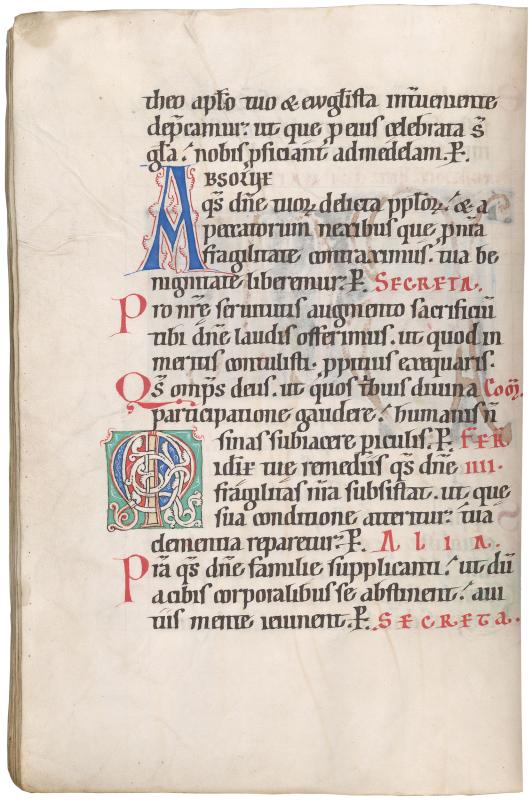 theo apl̄o tuo & ewgl̄ista int̄ueniente
dep̄camur. ut que p̲ eius celebrata s̄
gl̄a. nobis p̲ficiant ad medelam. P̲.
ABSOLVE
q̄s dn̄e tuoꝝ delicta pp̄loꝝ. & a
peccatorum nexibus que p̲ n̄ra
fragilitate contraximus. tua be
nignitate liberemur. P̲. SECRETA.
Pro nr̄e seruitutis augmento sacrificiū
tibi dn̄e laudis offerimus. ut quod in
meritis contulisti. p̲pitius exequaris.
Q̄s om̄ps deus. ut quos t̄buis diuina Com̄.
participatione gaudere. humanis n̄
sinas subiacere piculis. P̲. FER̄
M īdiæ tue remediis q̄s dn̄e IIII.
fragilitas n̄ra subsistat. ut que
sua conditione atteritur. tua
clementia reparetur. P̲. ALIA.
Pr̄a q̄s dn̄e familie supplicanti. ut dū
a cibis corporalibus se abstinent. a ui
tiis mente ieiunent. P̲. SECRETA.